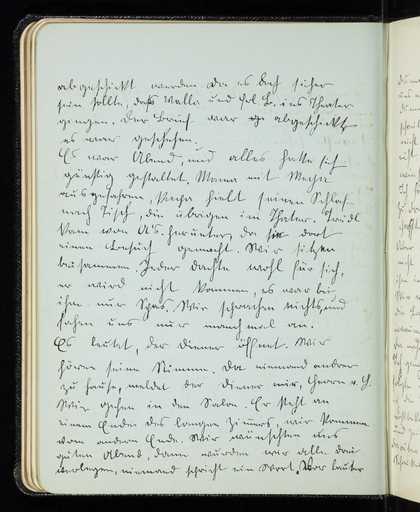 abgeschickt werden da es doch sicher
sein sollte, daß Walla und Frl. B. ins Theater
gingen. Der Brief war abgeschickt,
es war geschehen.
Es war Abend, und alles hatte sich
günstig gestaltet. Mama mit
ausgefahren, hielt seinen Schlaf
nach Tisch, die übrigen im Theater.
kam von A's. herunter, da sie dort
einen Besuch gemacht. Wir sitzen
beisammen. Jeder dachte wohl für sich,
er wird nicht kommen, es war bei
ihm nur Spass. Wir sprachen nichts, und
sahen uns nur manchmal an.
Es leutet, der Diener öffnet. Wir
hören seine Stimme. Da niemand anderer
zu Hause, meldet der Diener mir, Herrn v. H.
Wir gehen in den Salon. Er steht an
einem Ende des langen Zimmers, wir kommen
vom andern Ende. Wir wünschten uns
guten Abend, dann wurden wir alle drei
verlegen, niemand spricht ein Wort. Vor lauter